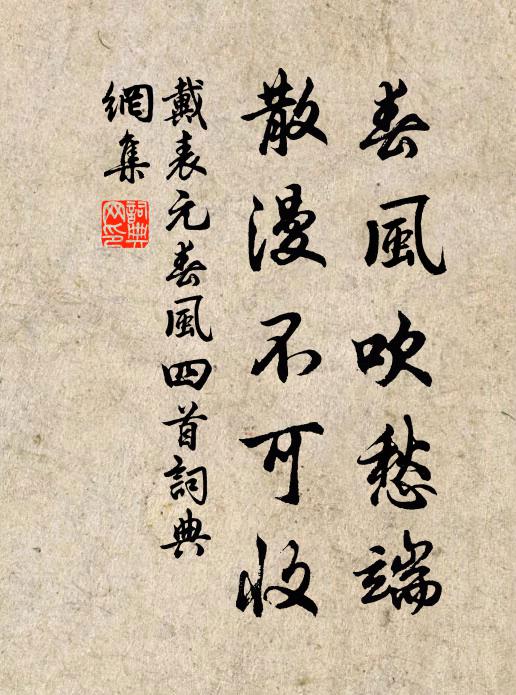 春風吹愁端
散漫不可收
戴表元春風四首詞典
網集
詞典網印